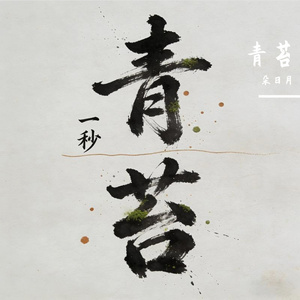 青苔
一秒
青苔
采日月